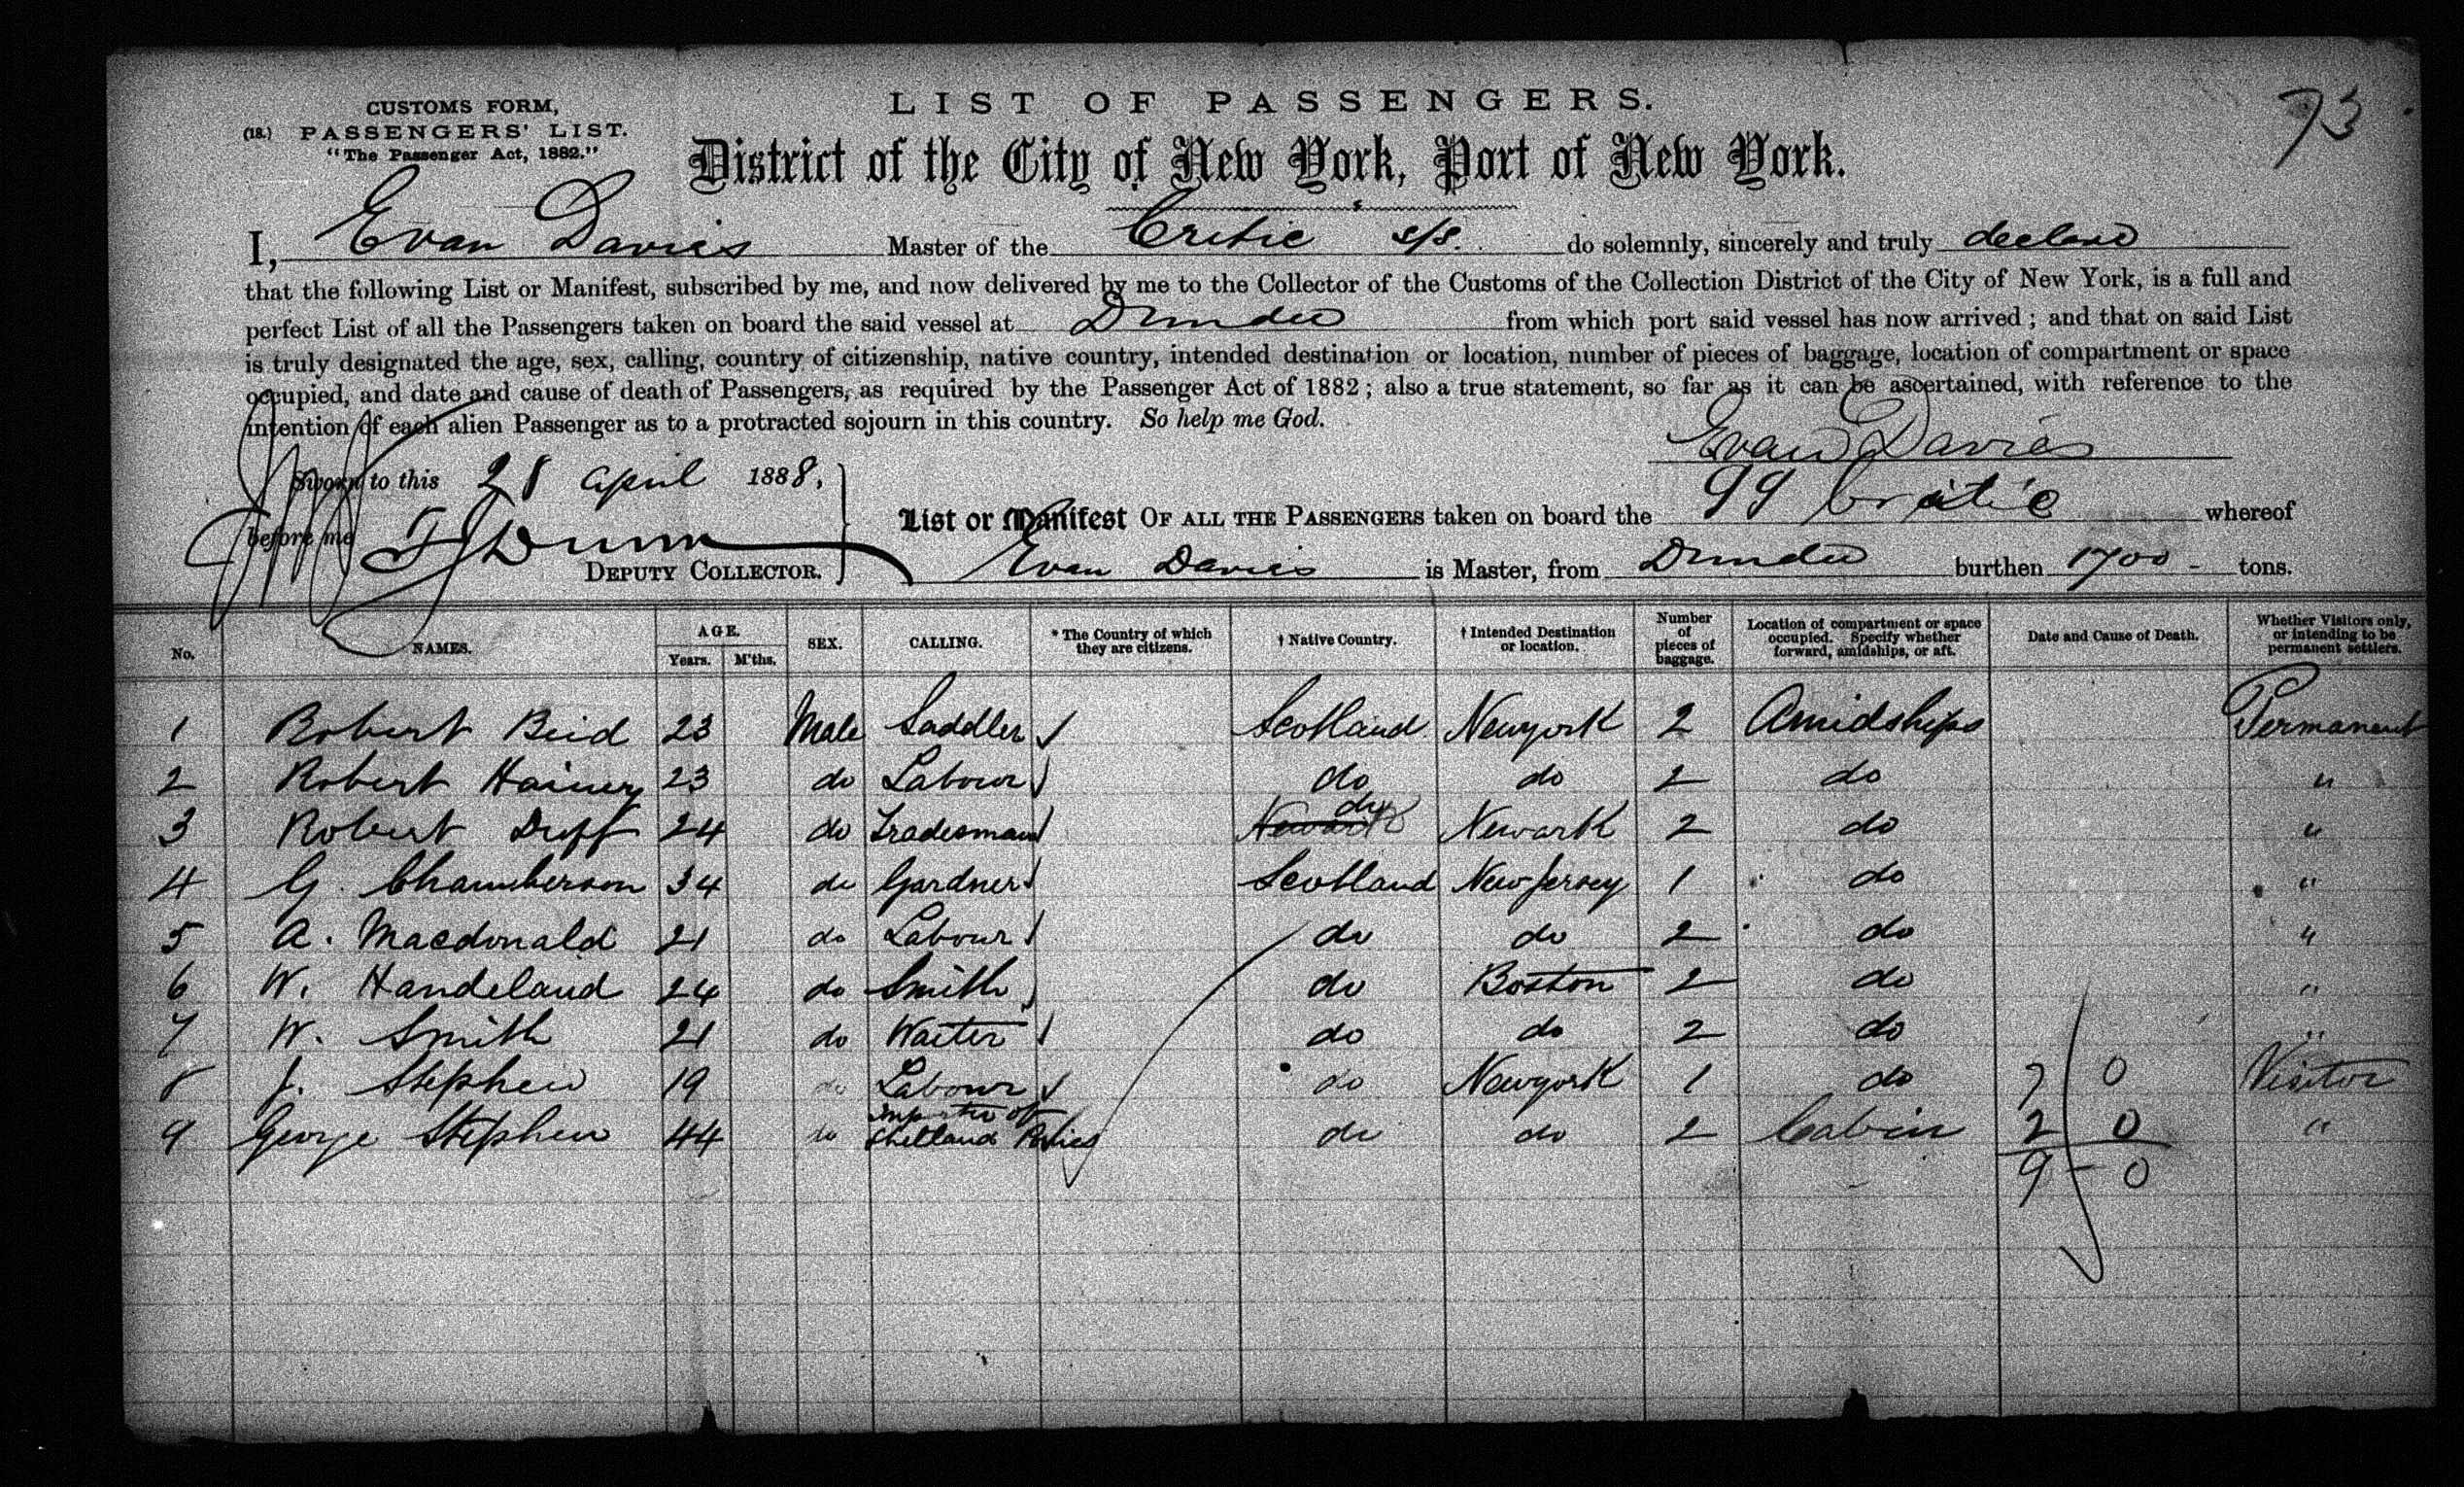 LIST OF PASSENGERS.
73
CUSTOMS FORM,
(18.) PASSENGERS' LIST.
"The Passenger Act, 1882."
District of the City of New York, Port of New York.
I, Evan Davies Master of the Critic s/s. do solemnly, sincerely and truly declare
that the following List or Manifest, subscribed by me, and now delivered by me to the Collector of the Customs of the Collection District of the City of New York, is a full and
perfect List of all the Passengers taken on board the said vessel at Dundee from which port said vessel has now arrived; and that on said List
is truly designated the age, sex, calling, country of citizenship, native country, intended destination or location, number of pieces of baggage, location of compartment or space
occupied, and date and cause of death of Passengers, as required by the Passenger Act of 1882; also a true statement, so far as it can be ascertained, with reference to the
intention of each alien Passenger as to a protracted sojourn in this country. So help me God.
Evan Davies
Sworn to this 28 april 1888,
before me Dunn
DEPUTY COLLECTOR.
List or Manifest OF ALL THE PASSENGERS taken on board the SS Critic whereof
Evan Davies is Master, from Dundee burthen 1700 - tons.
No. NAMES. AGE. Years. M'ths. SEX. CALLING. * The Country of which they are citizens. † Native Country. † Intended Destination or location. Number of pieces of baggage. Location of compartment or space occupied. Specify whether forward, amidships, or aft. Date and Cause of Death. Whether Visitors only, or intending to be permanent settlers.
1 Robert Reid 23 Male Saddler Scotland Newyork 2 Amidships Permanent
2 Robert Hainey 23 do Labour do do 2 do "
3 Robert Duff 24 do Tradesman Newark do Newark 2 do "
4 G. Chamberson 34 do Gardner Scotland New Jersey 1 do "
5 A. Macdonald 21 do Labour do do 2 do "
6 W. Handeland 24 do Smith do Boston 2 do "
7 W. Smith 21 do Waiter do do 2 do "
8 J. Stephen 19 do Labour do Newyork 1 do 7 0 Visitor
9 George Stephen 44 do Importer of Shetland Ponies do do 2 Cabin 2 0 "
9 - 0